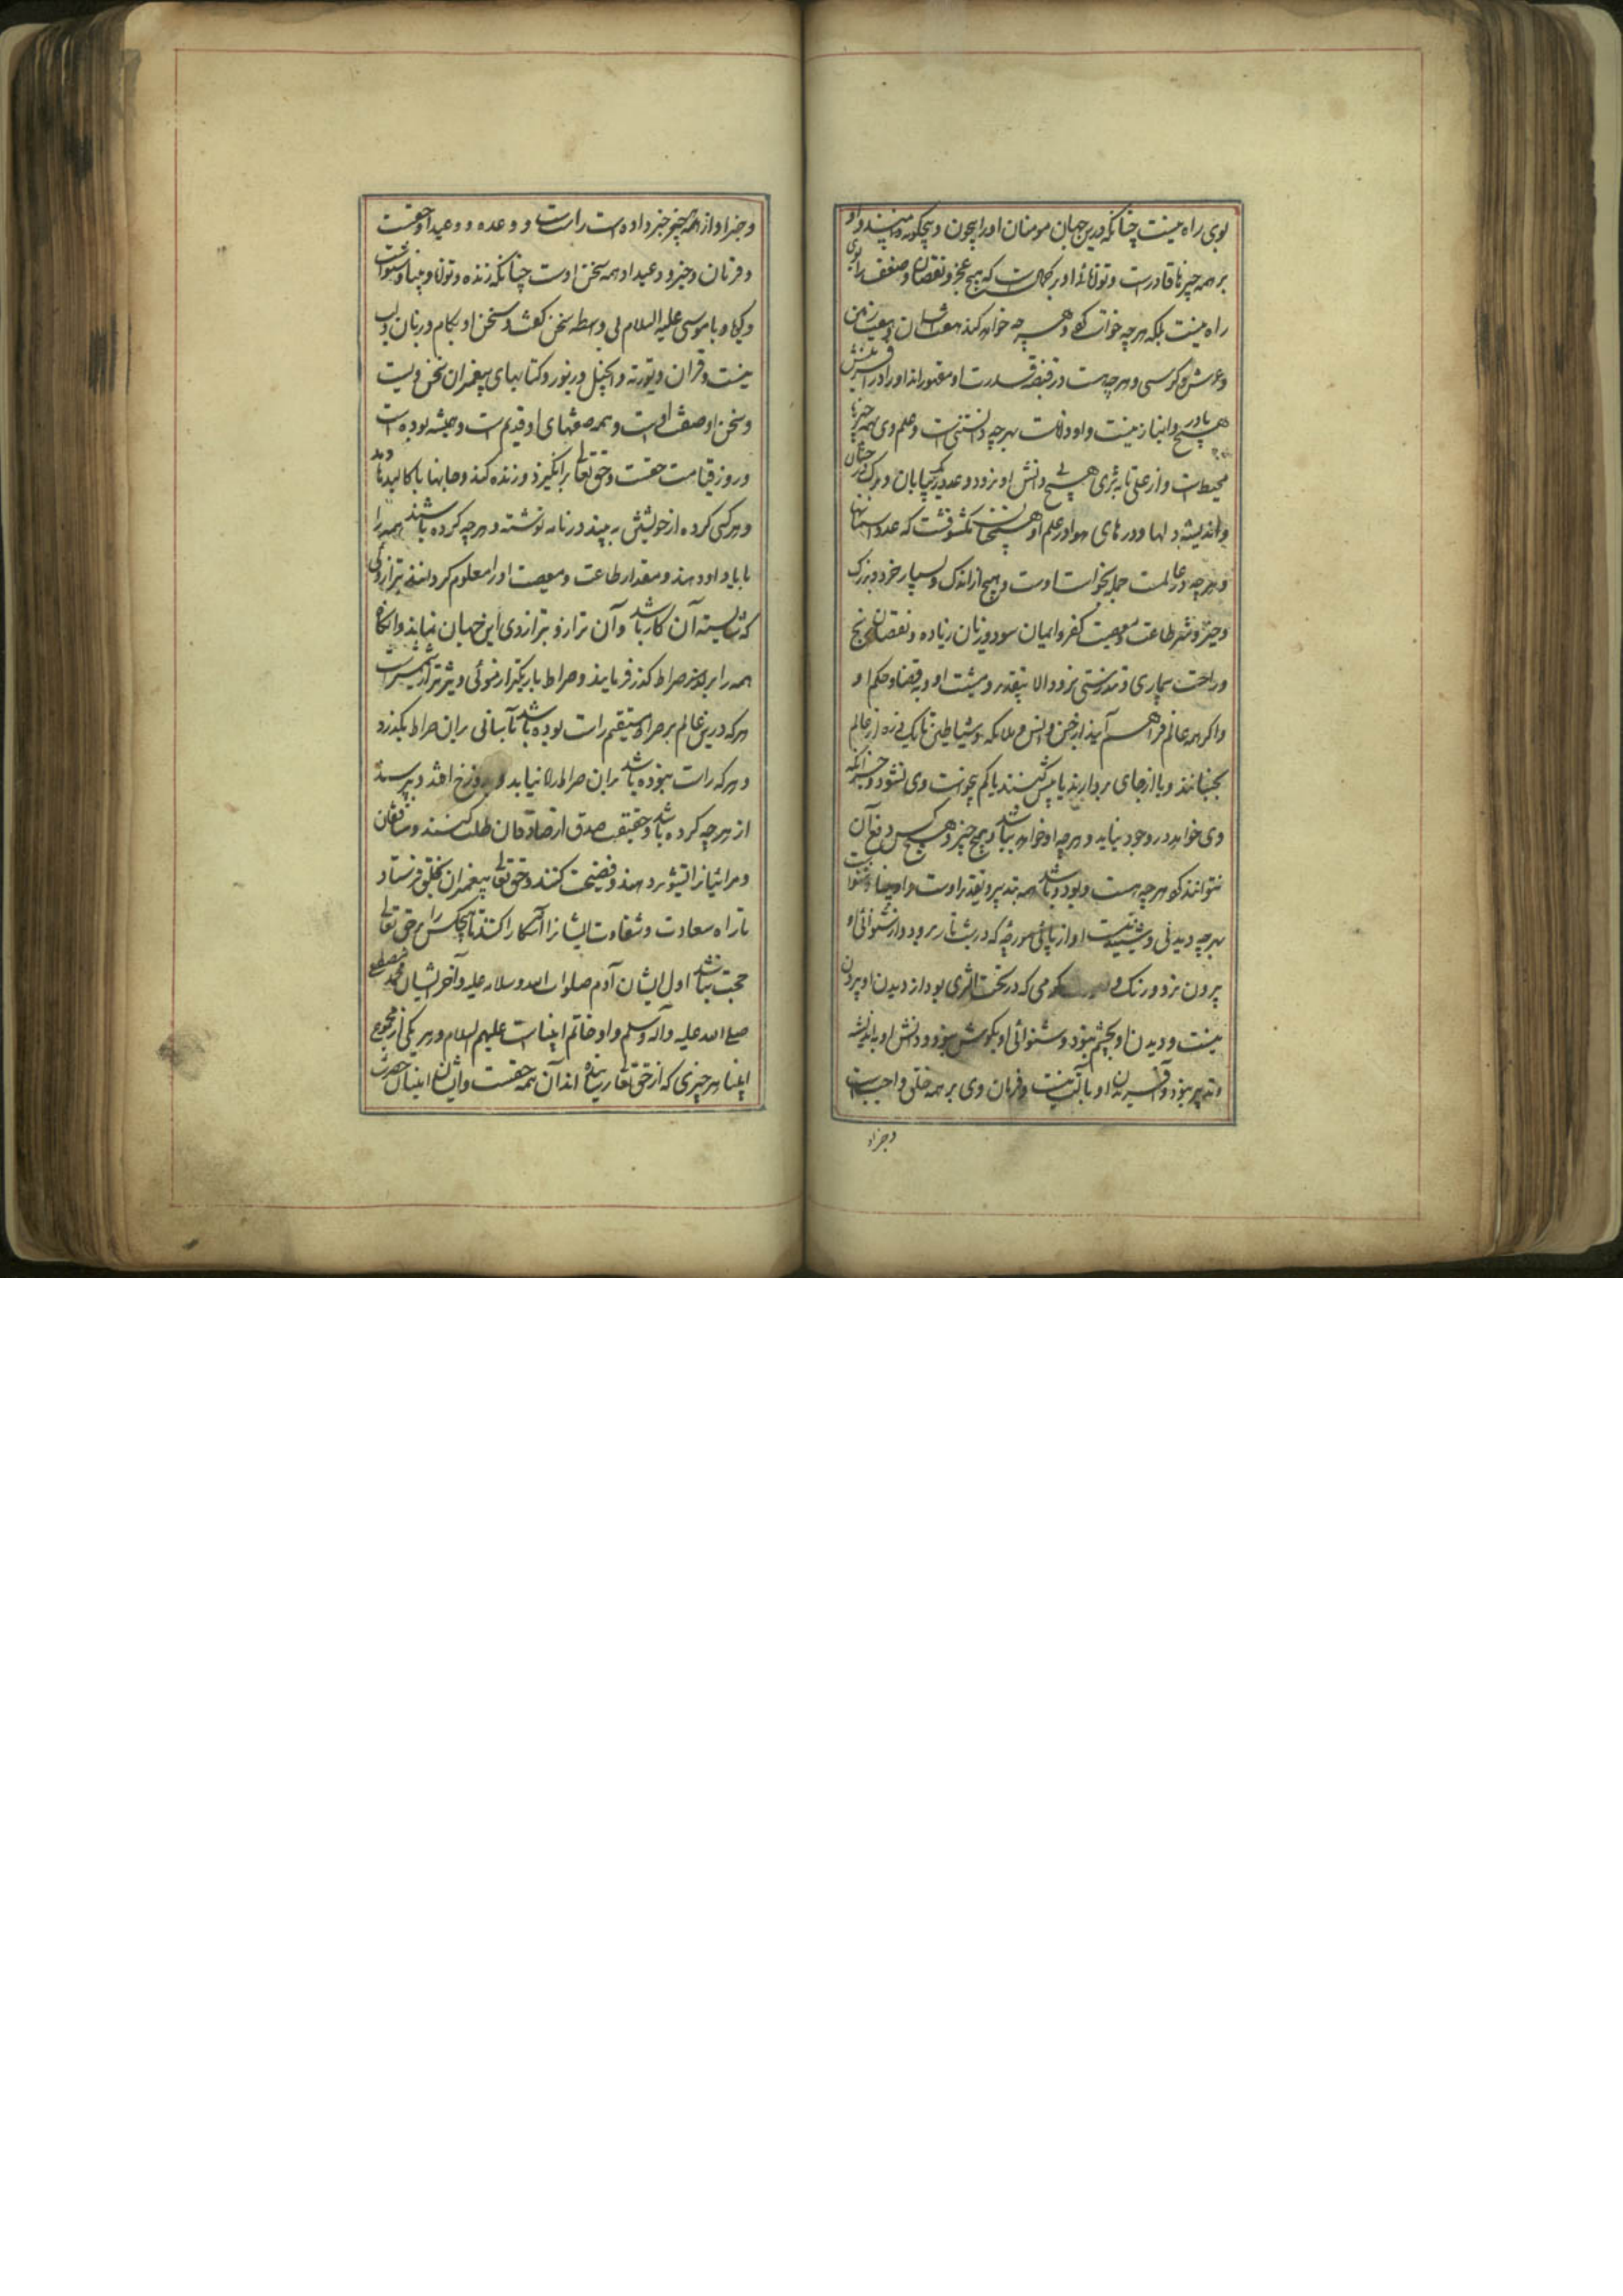 بوی راه نیست چنانکه درین جهان مومنان اورا بیچون و بیچگونه می بینند و او
بر همه چیزها قادرست و توانائی او بر کمالست که هیچ عجز و نقصان و ضعف را بوی
راه نیست بلکه هر چه خواست کند و هر چه خواهد کند هفت آسمان و هفت زمین
و عرش و کرسی و هر چه هست در قبضه قدرت او مقهور اند و او را در آفرینش
هیچ یار و انباز نیست و او داناست بهر چه دانستنی است و علم وی بهمه چیزها
محیط است و از علی تا به ثری هیچ بی دانش او نرود و عدد ریگ بیابان و برگ درختان
و اندیشه دلها و ذرهای هوا در علم او همچنان مکشوفست که عدد آسمانها
و هر چه در عالمست جمله بخواست اوست و هیچ از اندک و بسیار خرد و بزرگ
و خیر و شر طاعت و معصیت کفر و ایمان سود و زیان زیاده و نقصان رنج
و راحت بیماری و تندرستی نرود الا بتقدیر و مشیت او و به قضا و حکم او
و اگر همه عالم فراهم آیند از جن و انس و ملائکه و شیاطین تا یک ذره از عالم
بجنبانند و یا از جای بردارند یا بیش کنند یا کم بی خواست وی نشود و جز آنکه
وی خواهد در وجود نیاید و هر چه او خواهد نباشد و هیچ چیز و هیچ کس دفع آن
نتوانند کرد هر چه هست و بود و باشد همه بتدبیر و تقدیر اوست و او بینا و شنواست
بهر چه دیدنی و شنیدنیست او از پای مورچه که در شب تار برود و از شنوائی او
بیرون نرود و رنگ و کرمی که در تحت الثری بود از دیدن او بیرون
نیست و دیدن او بچشم نبود و شنوائی او بگوش نبود و دانش او به اندیشه
و تدبیر نبود و آفریدن او بآلت نیست و فرمان وی بر همه خلق واجب است
و جزاو
و خبر او از همه چیز خبر داده است راست و وعده و وعید او حقست
و فرمان و خبر و وعید او همه سخن اوست چنانکه زنده و توانا و بینا و شنواست
و گویا و با موسی علیه السلام بی واسطه سخن گفت و سخن او بکام و زبان و لب
نیست و قران و توریة و انجیل و زبور و کتابهای پیغمبران سخن ویست
و سخن او صفت اوست و همه صفتهای او قدیم است و همیشه بوده است
و روز قیامت حقست و حق تعالی برانگیزد و زنده کند و جانها با کالبدها دهد
و هر کسی کرده از خویشتن به بیند در نامه نوشته و هر چه کرده باشند همه را
با یاد او دهند و مقدار طاعت و معصیت او را معلوم گردانند بترازوئی
که شایسته آن کار باشد و آن ترازو بترازوی این جهان نماند و آنگاه
همه را بر صراط گذر فرمایند و صراط باریکتر از موئی و تیزتر از شمشیرست
هر که درین عالم بر صراط مستقیم راست بوده باشد بآسانی بران صراط بگذرد
و هر که راست نبوده باشد بران صراط راه نیابد و بدوزخ افتد و بپرسند
از هر چه کرده باشد و حقیقت صدق از صادقان طلب کنند و منافقان
و مرائیان را تشویر دهند و فضیحت کنند و حق تعالی پیغمبران بخلق فرستاد
تا راه سعادت و شقاوت ایشانرا آشکارا کنند تا هیچکس را بر حق تعالی
حجت نباشد اول ایشان آدم صلوات الله و سلامه علیه و آخر ایشان محمد مصطفی
صلی الله علیه و آله وسلم و او خاتم انبیاست علیهم السلام و هر یکی از مجموع
انبیا هر چیزی که از حق تعالی رسانیده اند آن همه حقست و از ایشان انبیا حضرت